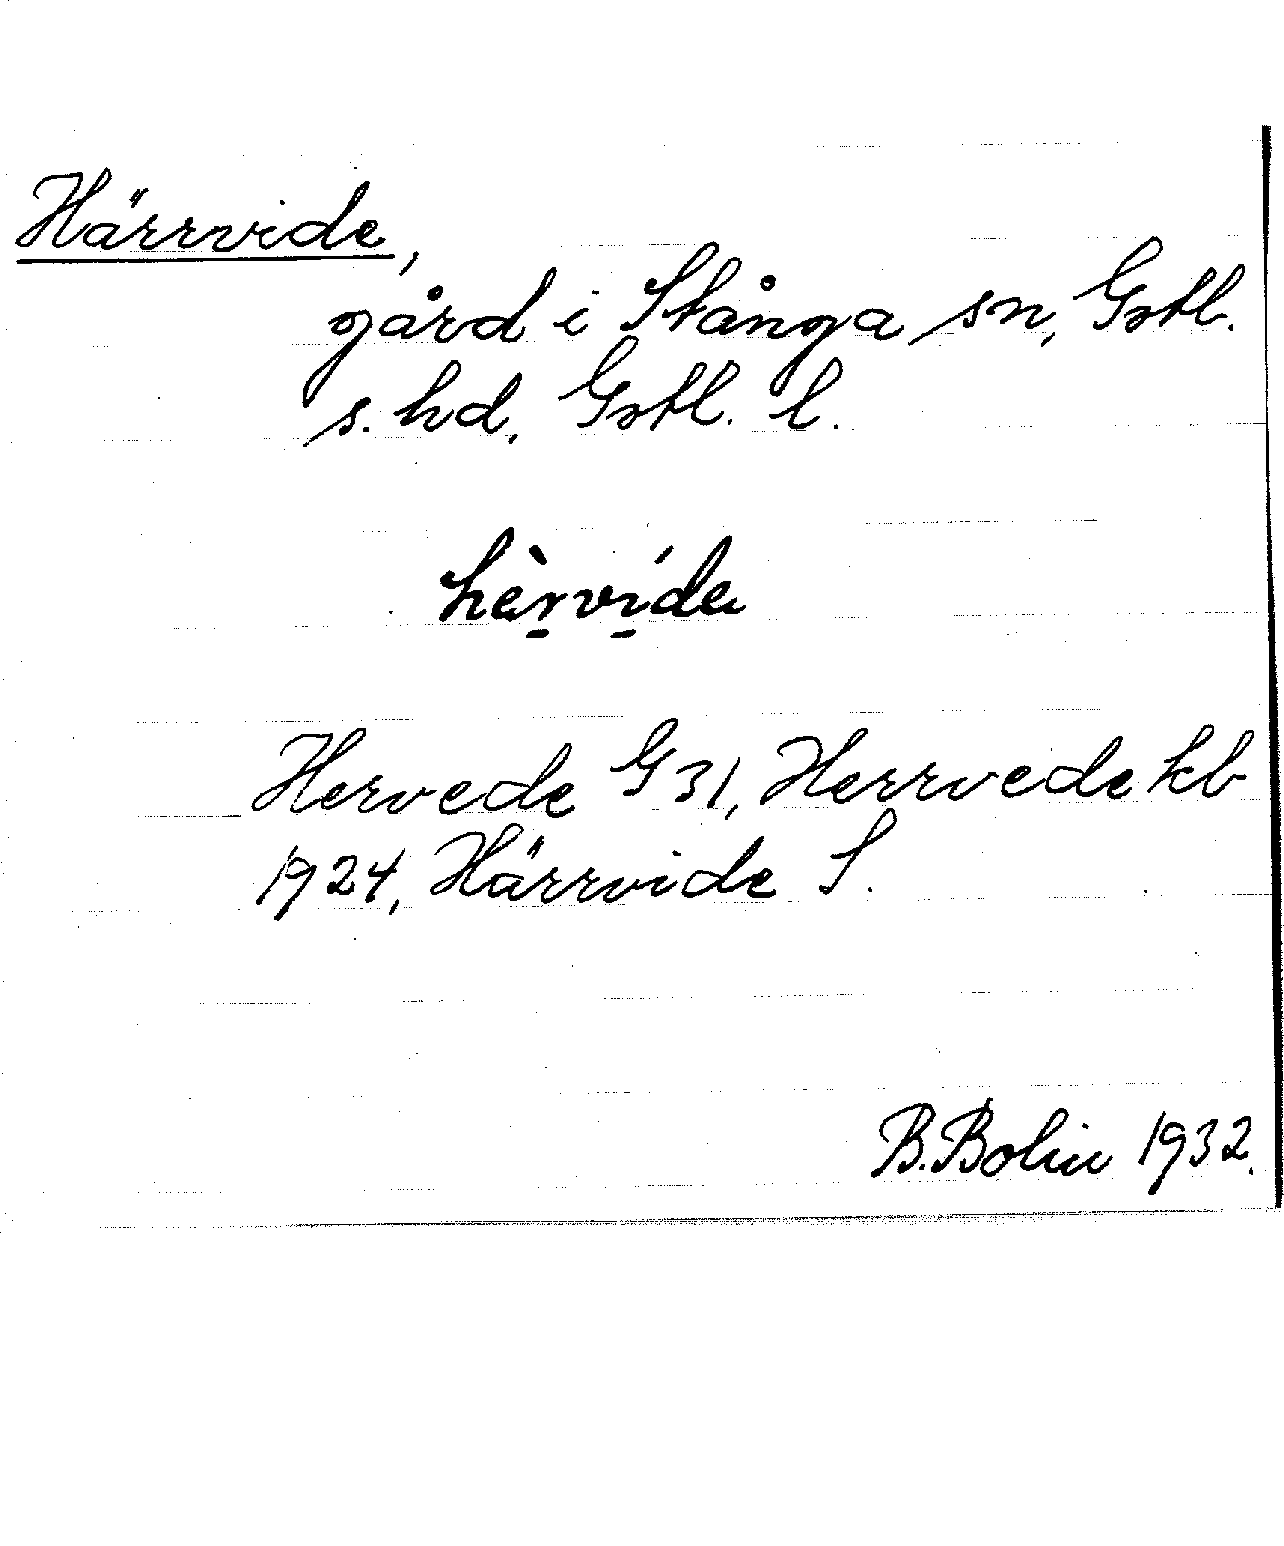 Härrvide,
gård i Stånga sn, Gotl.
s. hd, Gotl. l.
hèrvída
Hervede G 31, Herrvede kb
1924, Härrvide S.
B. Bolin 1932.